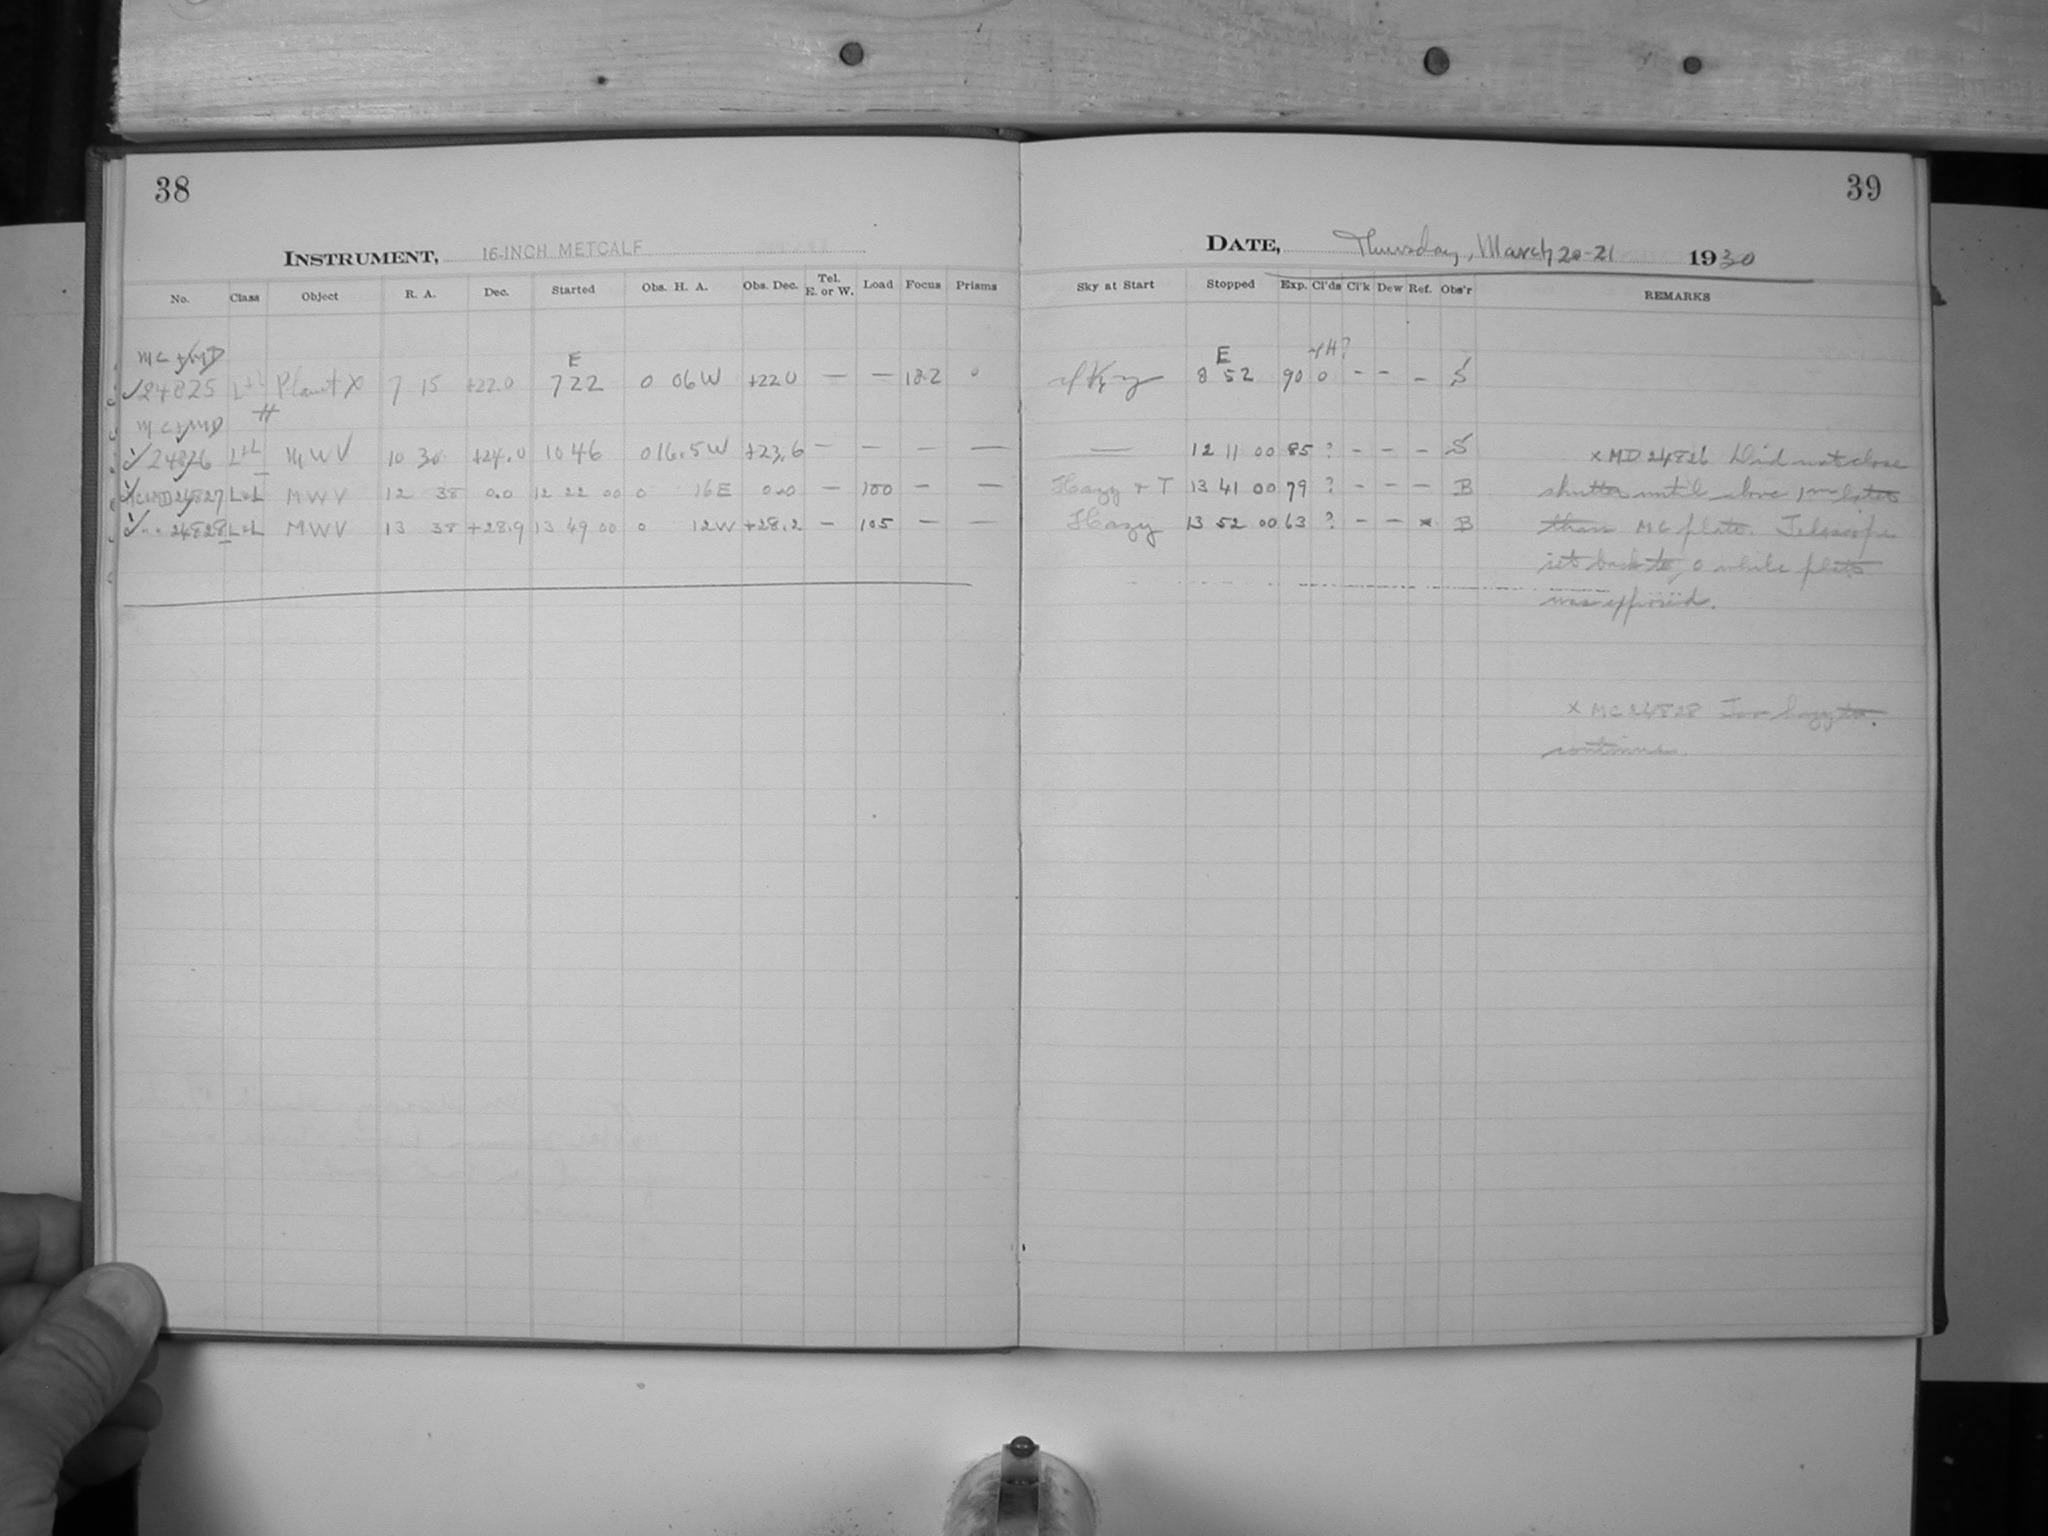 38
INSTRUMENT, 16-INCH METCALF
No. Class Object R. A. Dec. Started Obs. H. A. Obs. Dec. Tel. E. or W. Load Focus Prisms
MC + MD E
✓24825 L+L Planet X 7 15 +22.0 7 22 0 06W +22.0 — — 18.2 0
MC + MD
✓24826 L+L MWV 10 30 +24.0 10 46 0 16.5W +23.6 — — — —
MC+MD 24827 L+L MWV 12 38 0.0 12 22 00 0 16E 0.0 — 100 — —
✓ " " 24828 L+L MWV 13 38 +28.9 13 49 00 0 12W +28.2 — 105 — —
39
DATE, Thursday, March 20-21 1930
Sky at Start Stopped Exp. Cl'ds Cl'k Dew Ref. Obs'r REMARKS
E H?
8 52 90 0 - - - S
— 12 11 00 85 ? - - - S × MD 24826 Did not close
Hazy + T 13 41 00 79 ? - - - B shutter until above 1m later
Hazy 13 52 00 63 ? - - × B than MC plate. Telescope
set back to 0 while plate
was exposed.
× MC 24828 Too hazy to
continue.